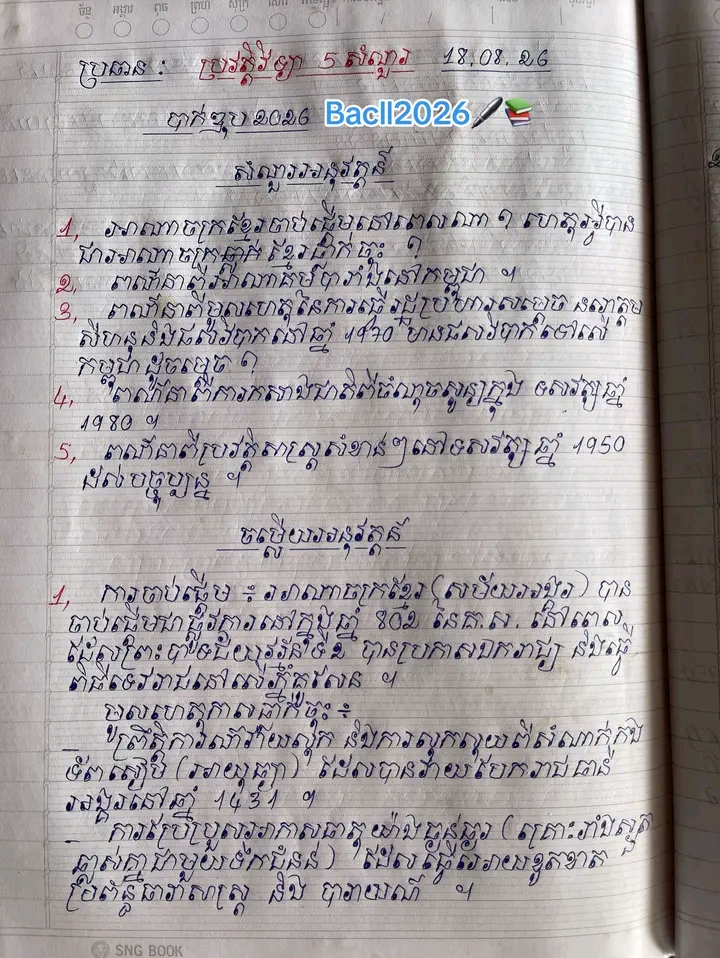 ច័ន្ទ អង្គារ ពុធ ព្រហ សុក្រ សៅរ៍
ប្រធាន : ប្រវត្តិវិទ្យា 5 សំណួរ 18.08.26
បាក់ឌុប 2026 BacII2026
សំណួរអនុវត្តន៍
1, អាណាចក្រខ្មែរចាប់ផ្ដើមនៅពេលណា ? ហេតុអ្វីបាន
ជាអាណាចក្រខ្មែរធ្លាក់ចុះ ?
2, ពណ៌នាពីអាណាគមបារាំងនៅកម្ពុជា ។
3, ពណ៌នាពីមូលហេតុនៃការធ្វើរដ្ឋប្រហារសម្ដេច នរោត្តម
សីហនុនិងផលវិបាកនៅឆ្នាំ 1970 មានផលវិបាកទៅលើ
កម្ពុជាដូចម្ដេច ?
4, ពណ៌នាពីការកសាងជាតិពីចំណុចសូន្យក្នុង ទសវត្សឆ្នាំ
1980 ។
5, ពណ៌នាពីប្រវត្តិសាស្ត្រសំខាន់ៗនៅទសវត្ស ឆ្នាំ 1950
ដល់បច្ចុប្បន្ន ។
ចម្លើយអនុវត្តន៍
1, ការចាប់ផ្ដើម ៖ អាណាចក្រខ្មែរ (សម័យអង្គរ) បាន
ចាប់ផ្ដើមជាផ្លូវការនៅក្នុងឆ្នាំ 802 នៃគ.ស. នៅពេល
ដែលព្រះបាទជ័យវរ្ម័នទី2 បានប្រកាសឯករាជ្យ និងធ្វើ
ពិធីទេវរាជនៅលើភ្នំគូលែន ។
មូលហេតុកាលធ្លាក់ចុះ ៖
_ ព្រឹត្តិការណ៍វាយលុក និងការលុកលុយពីសំណាក់កង
ទ័ពសៀម (អាយុធ្យា) ដែលបានវាយបែករាជធានី
អង្គរនៅឆ្នាំ 1431 ។
_ ការប្រែប្រួលអាកាសធាតុយ៉ាងធ្ងន់ធ្ងរ (គ្រោះរាំងស្ងួត
ឆ្លាស់គ្នាជាមួយទឹកជំនន់) ដែលធ្វើអោយខូតខាត
ប្រព័ន្ធធារាសាស្ត្រ និង បារាយណ៍ ។
SNG BOOK